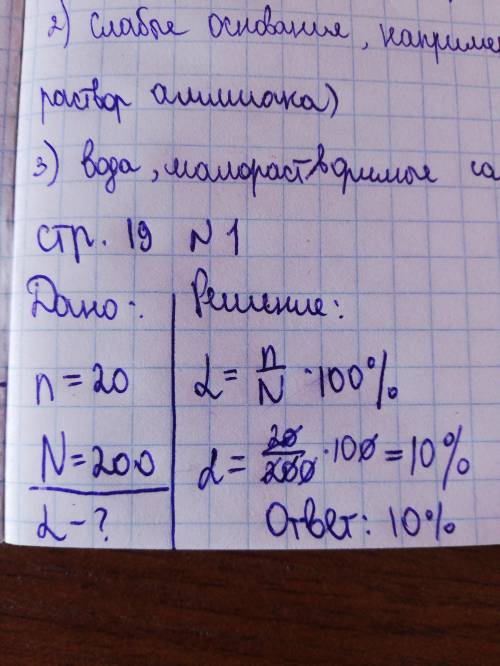 2) слабые основания, наприме
раствор аммиака)
3) вода, малорастворимые
стр. 19 N 1
Дано: Решение:
n = 20 α = n/N · 100%
N = 200 α = 20/200 · 100 = 10%
α - ? Ответ: 10%